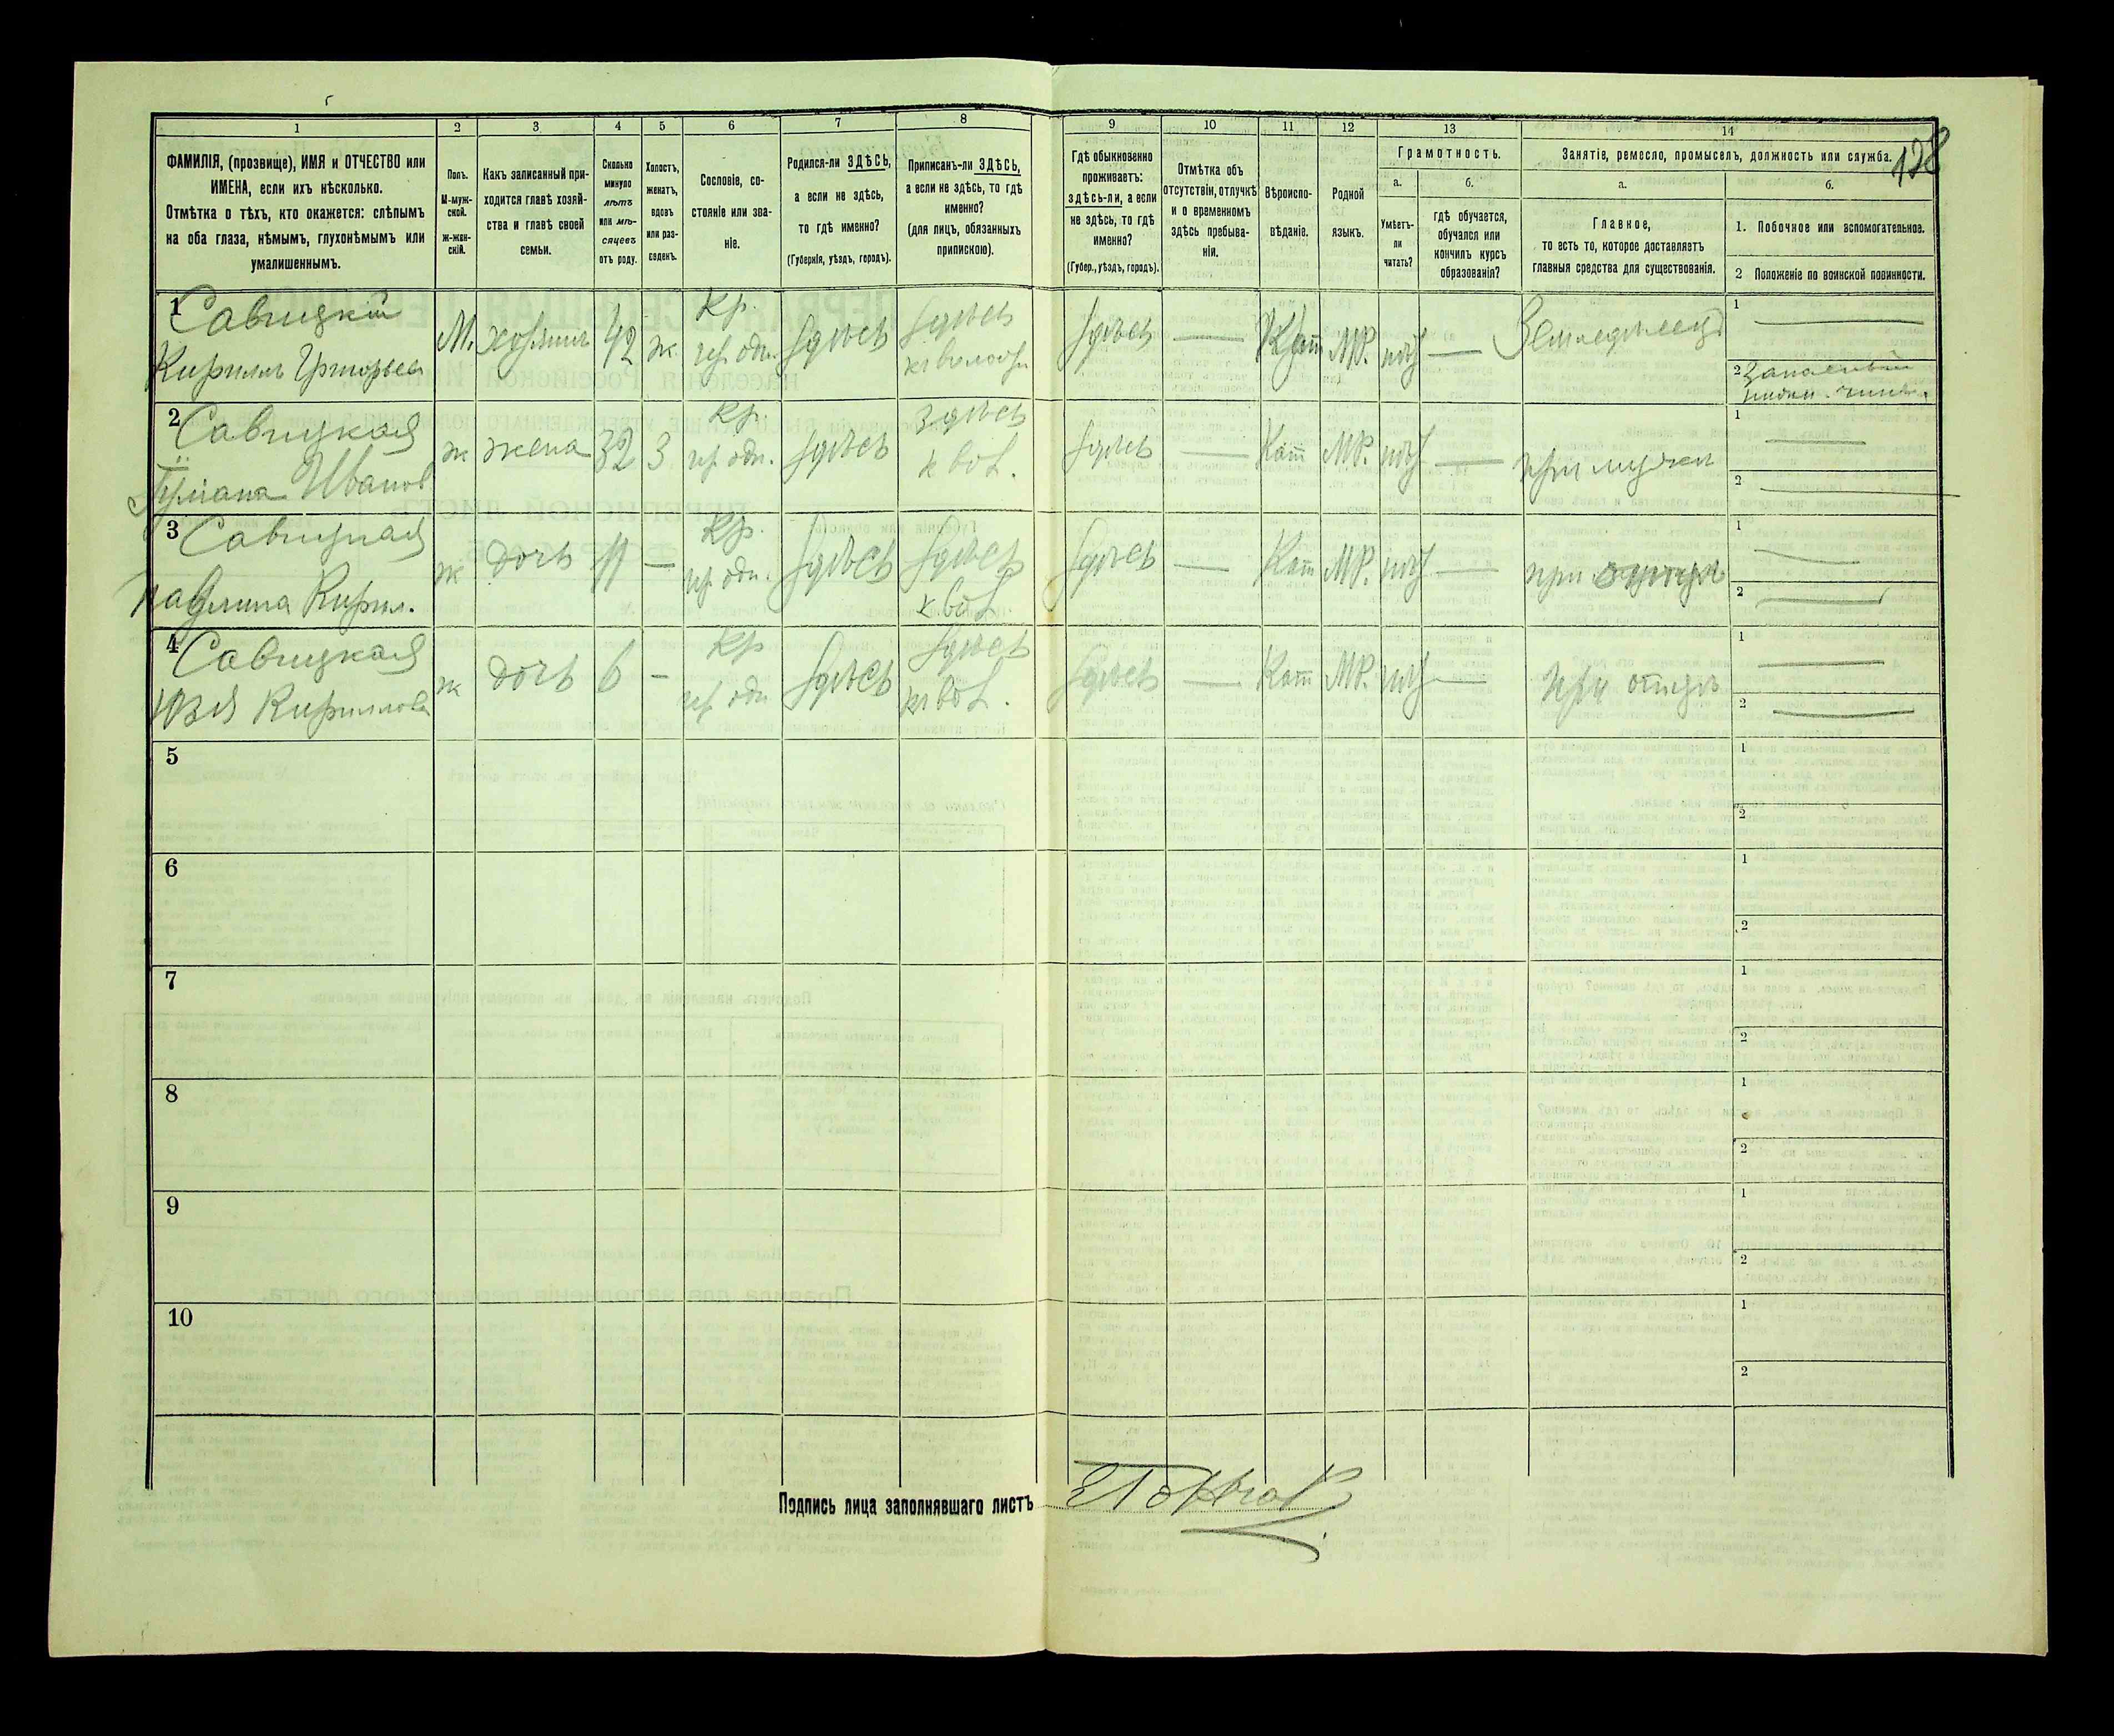 128
1 2 3 4 5 6 7 8 9 10 11 12 13 14
ФАМИЛІЯ, (прозвище), ИМЯ и ОТЧЕСТВО или
ИМЕНА, если ихъ нѣсколько.
Отмѣтка о тѣхъ, кто окажется: слѣпымъ
на оба глаза, нѣмымъ, глухонѣмымъ или
умалишеннымъ.
Полъ.
М-муж-
ской.
ж-жен-
скій.
Какъ записанный при-
ходится главѣ хозяй-
ства и главѣ своей
семьи.
Сколько
минуло
лѣтъ
или мѣ-
сяцевъ
отъ роду.
Холостъ,
женатъ,
вдовъ
или раз-
веденъ.
Сословіе, со-
стояніе или зва-
ніе.
Родился-ли ЗДѢСЬ,
а если не здѣсь,
то гдѣ именно?
(Губернія, уѣздъ, городъ).
Приписанъ-ли ЗДѢСЬ,
а если не здѣсь, то гдѣ
именно?
(для лицъ, обязанныхъ
припискою).
Гдѣ обыкновенно
проживаетъ:
здѣсь-ли, а если
не здѣсь, то гдѣ
именно?
(Губер., уѣздъ, городъ).
Отмѣтка объ
отсутствіи, отлучкѣ
и о временномъ
здѣсь пребыва-
ніи.
Вѣроиспо-
вѣданіе.
Родной
языкъ.
Грамотность.
а.
Умѣетъ-
ли
читать?
б.
гдѣ обучается,
обучался или
кончилъ курсъ
образованія?
Занятіе, ремесло, промыселъ, должность или служба.
а.
Главное,
то есть то, которое доставляетъ
главныя средства для существованія.
б.
1. Побочное или вспомогательное.
2 Положеніе по воинской повинности.
1 Савицкій Кр. здѣсь 1
Кирилъ Григорьев М. хозяинъ 42 ж. здѣсь здѣсь — Кат МР. — 2 Запасный
2 Савицкая Кр. здѣсь 1
Иванов ж жена 32 З здѣсь к вол. здѣсь — Кат МР. — при мужѣ 2
3 Савицкая Кр. здѣсь 1
Павлина Кирил. ж дочь 11 — здѣсь к.вол здѣсь — Кат МР. — при отцѣ 2
4 Савицкая Кр здѣсь 1
Юзя Кириллова ж дочь 6 — здѣсь вол. здѣсь — Кат МР. — при отцѣ 2
5 1
2
6 1
2
7 1
2
8 1
2
9 1
2
10 1
2
Подпись лица заполнявшаго листъ